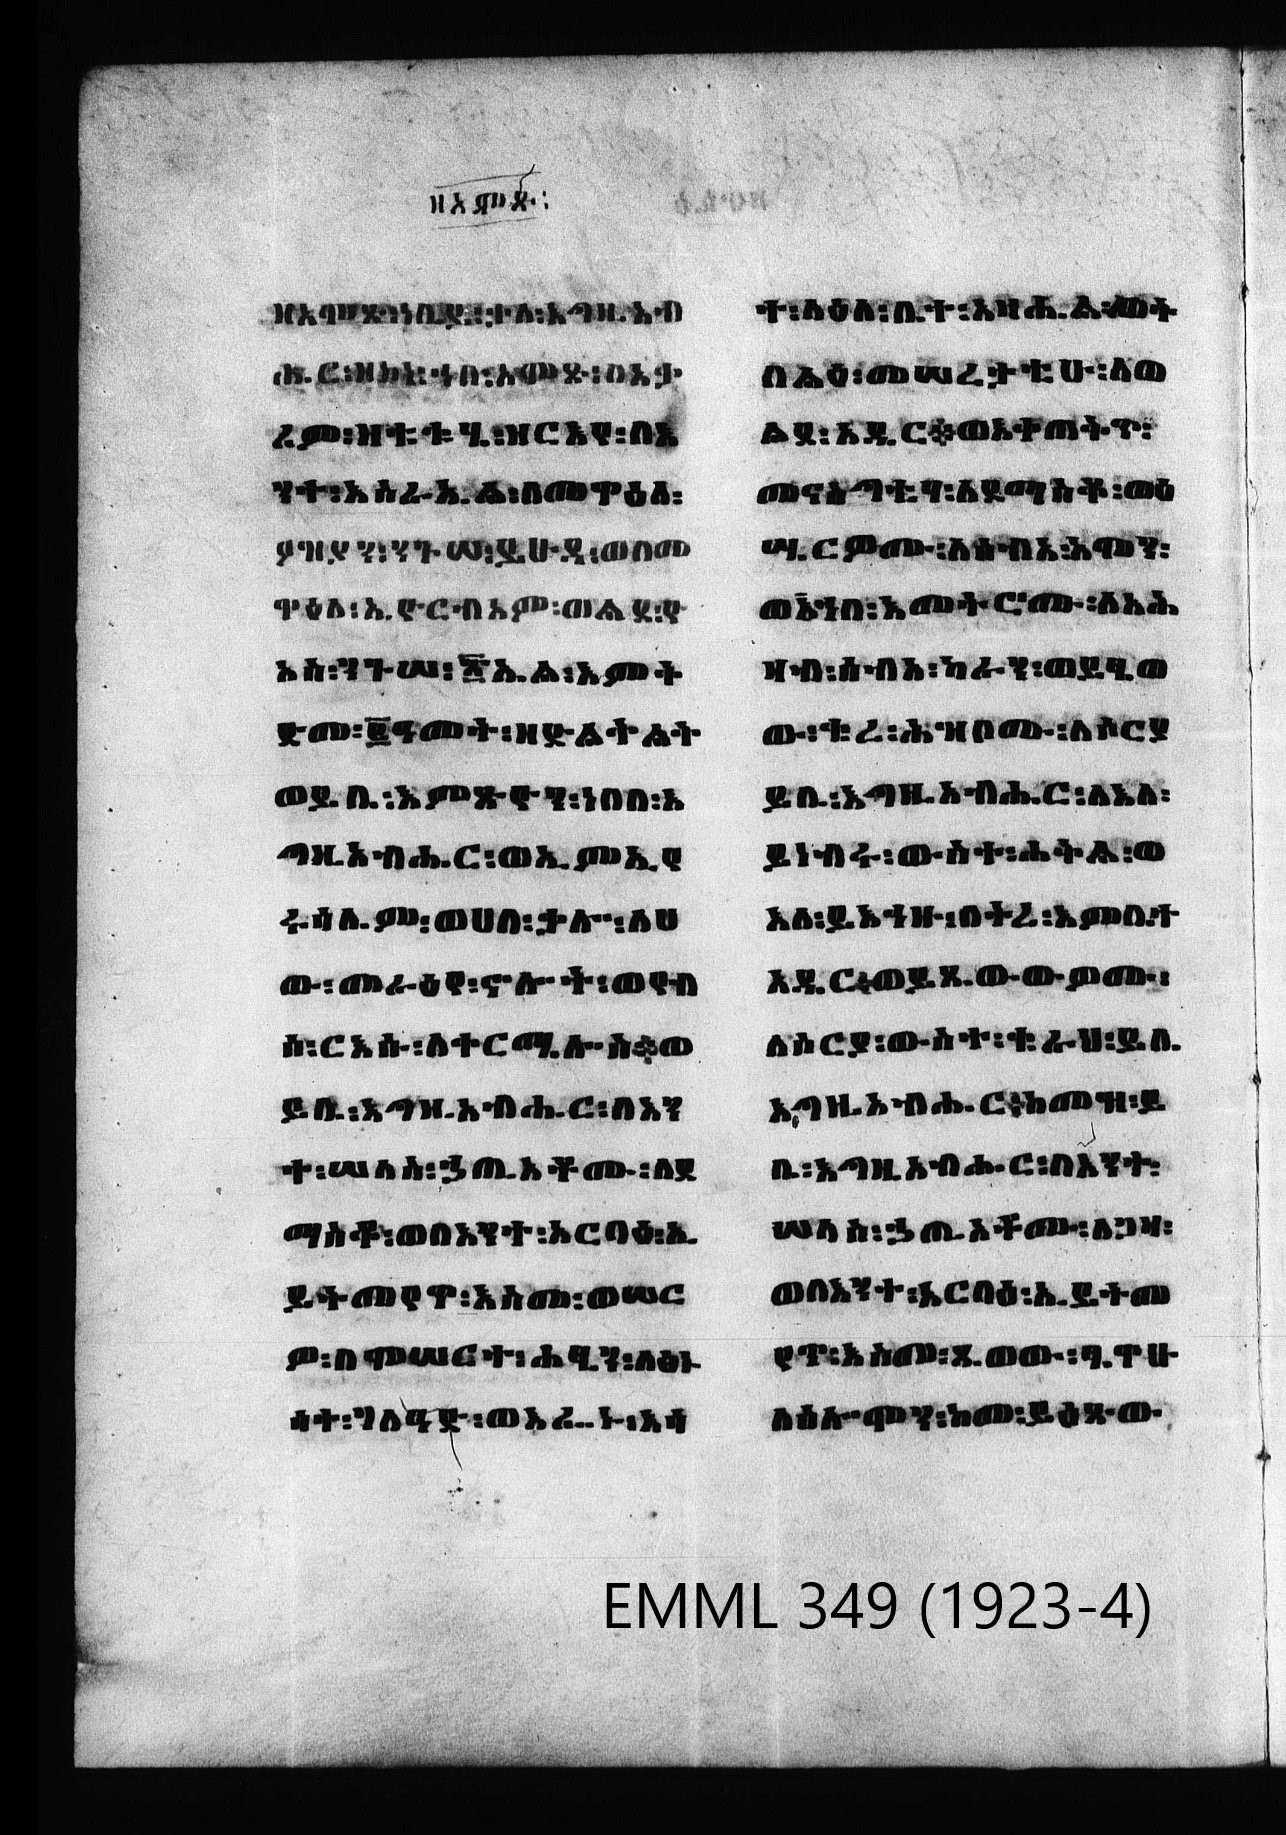 ዘአሞጽ፡
ዘአሞጽ፡ነቢይ፡ቃለ፡እግዚአብ
ሔር፡ዘከመ፡ኮነ፡አሞጽ፡በአቃ
ሬም፡ዘቴቁሄ፡ዘርእየ፡በእ
ንተ፡እስራኤል፡በመዋዕለ፡
ዖዝያን፡ንጉሠ፡ይሁዳ፡ወበመ
ዋዕለ፡ኢዮርብአም፡ወልደ፡ዮ
አስ፡ንጉሠ፡፳ኤል፡እምቅ
ድመ፡፪ዓመት፡ዘድልቅልቅ
ወይቤ፡እምጽዮን፡ነበበ፡እ
ግዚአብሔር፡ወኢምኢየ
ሩሳሌም፡ወሀበ፡ቃሎ፡ለሀ
ው፡መራዕየ፡ኖሎት፡ወየብ
ሰ፡ርእሱ፡ለቀርሜሎስ፨ወ
ይቤ፡እግዚአብሔር፡በእን
ተ፡ሠለስ፡ኃጢአቶሙ፡ለደ
ማስቆ፡ወበእንተ፡አርባዕ፡ኢ
ይትመየጥ፡እስመ፡ወሠር
ም፡በሞሠርት፡ሐፂን፡ለፅኑ
ሳተ፡ገለዓድ፡ወእፌኑ፡እሳ
ተ፡ለዕለ፡ቤተ፡አዛሔል፡ወት
በልዕ፡መሠረታቲሁ፡ለወ
ልደ፡አዴር፨ወእቀጠቅጥ፡
መናስግቲሃ፡ለደማስቆ፡ወዕ
ሤርምሙ፡ለሰብአ፡አሞን፡
ወእነበ፡እመትርሙ፡ለአሕ
ዛብ፡ሰብአ፡ካራን፡ወይፄው
ው፡ቄሬ፡ሕዝቦሙ፡ለሶርያ
ይቤ፡እግዚአብሔር፡ለእለ፡
ይነብሩ፡ውስተ፡ሐቅል፡ወ
እለ፡ይእኅዙ፡በትረ፡እምቤተ
አዴር፡ወይጼውውዎሙ፡
ለሶርያ፡ውስተ፡ቄራህ፡ይቤ
እግዚአብሔር፨ከመዝ፡ይ
ቤ፡እግዚአብሔር፡በእንተ፡
ሠለስ፡ኃጢአቶሙ፡ለጋዛ፡
ወበእንተ፡አርባዕ፡ኢይትመ
የጥ፡እስመ፡ጼወው፡ዒጥሁ
ለሰሎሞን፡ከመ፡ይዕጽው
EMML 349 (1923-4)